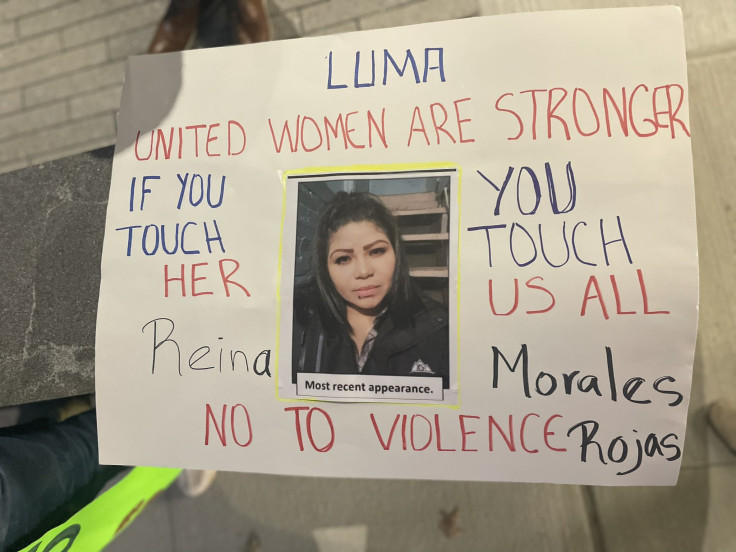 LUMA
UNITED WOMEN ARE STRONGER
IF YOU
TOUCH
HER
YOU
TOUCH
US ALL
Reina
Morales
Rojas
Most recent appearance.
NO TO VIOLENCE